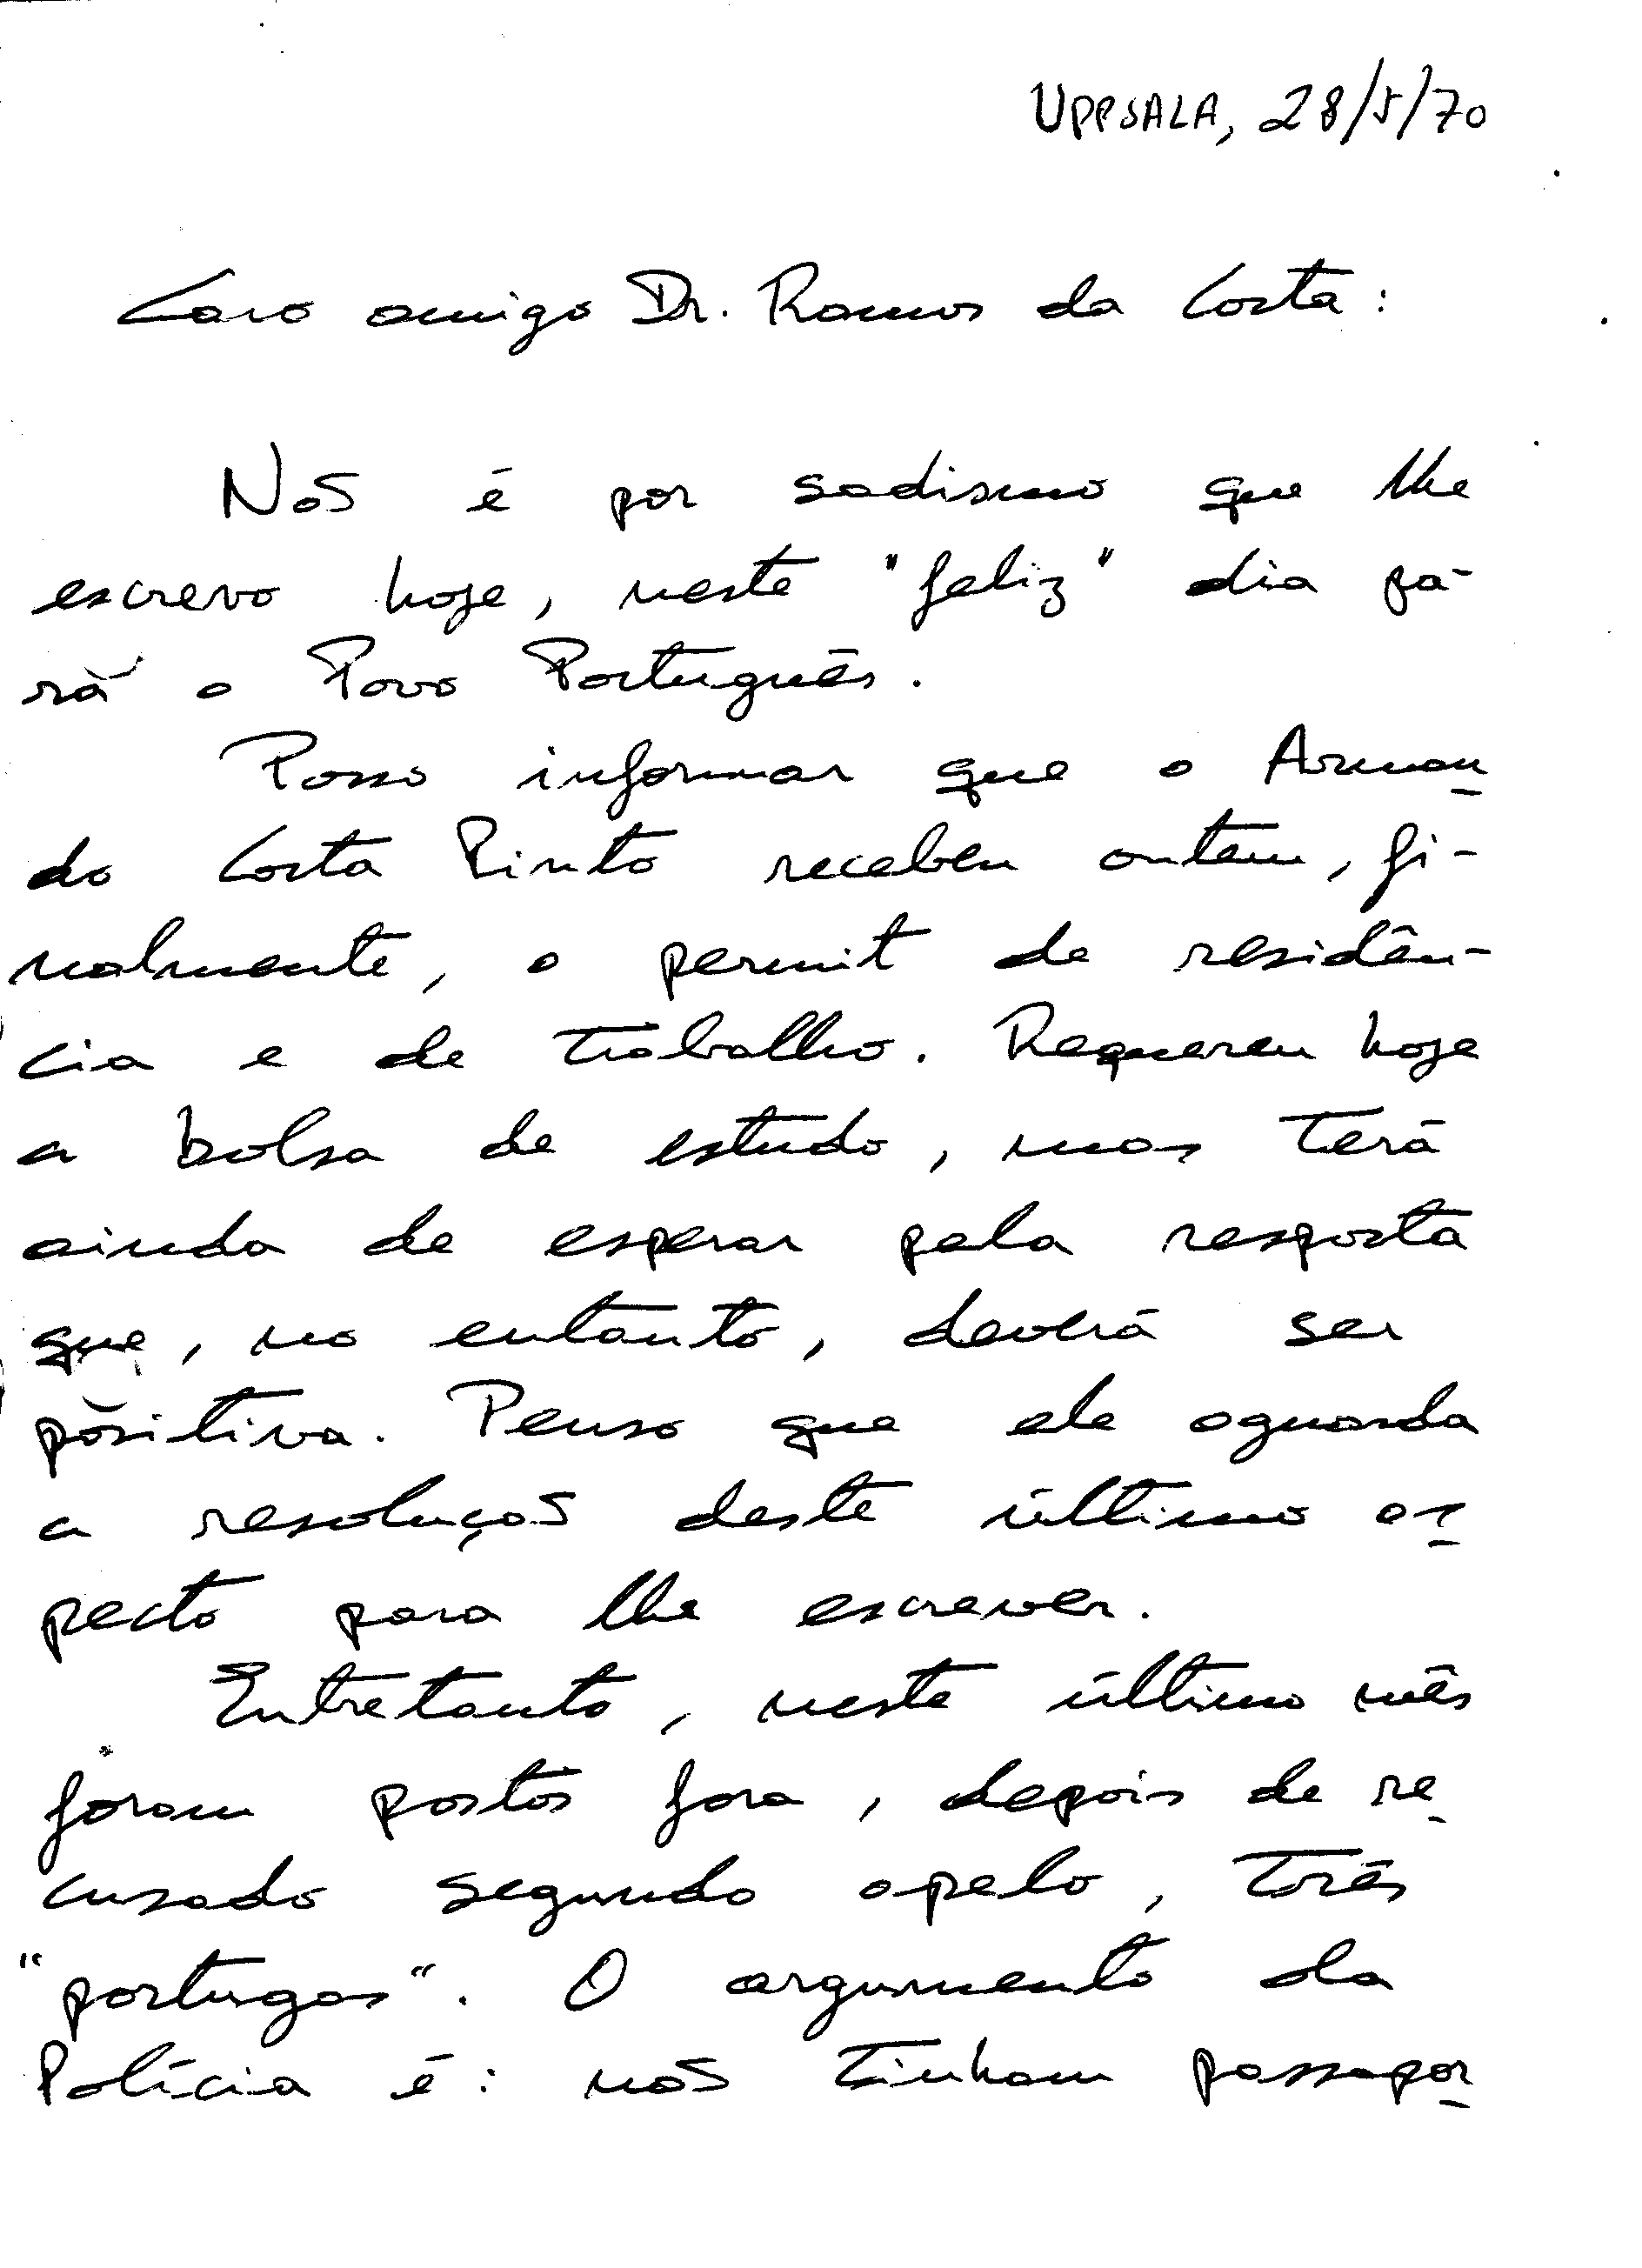 UPPSALA, 28/5/70
Caro amigo Dr. Ramos da Costa:
Não é por sadismo que lhe
escrevo hoje, neste "feliz" dia pa-
ra o Povo Português.
Posso informar que o Arman-
do Costa Pinto recebeu ontem, fi-
nalmente, o permit de residên-
cia e de trabalho. Requereu hoje
a bolsa de estudo, mas terá
ainda de esperar pela resposta
que, no entanto, deverá ser
positiva. Penso que ele aguarda
a resolução deste último as-
pecto para lhe escrever.
Entretanto, neste último mês
foram postos fora, depois de re-
cusado segundo apelo, três
"portugas". O argumento da
Polícia é: não tinham passapor-